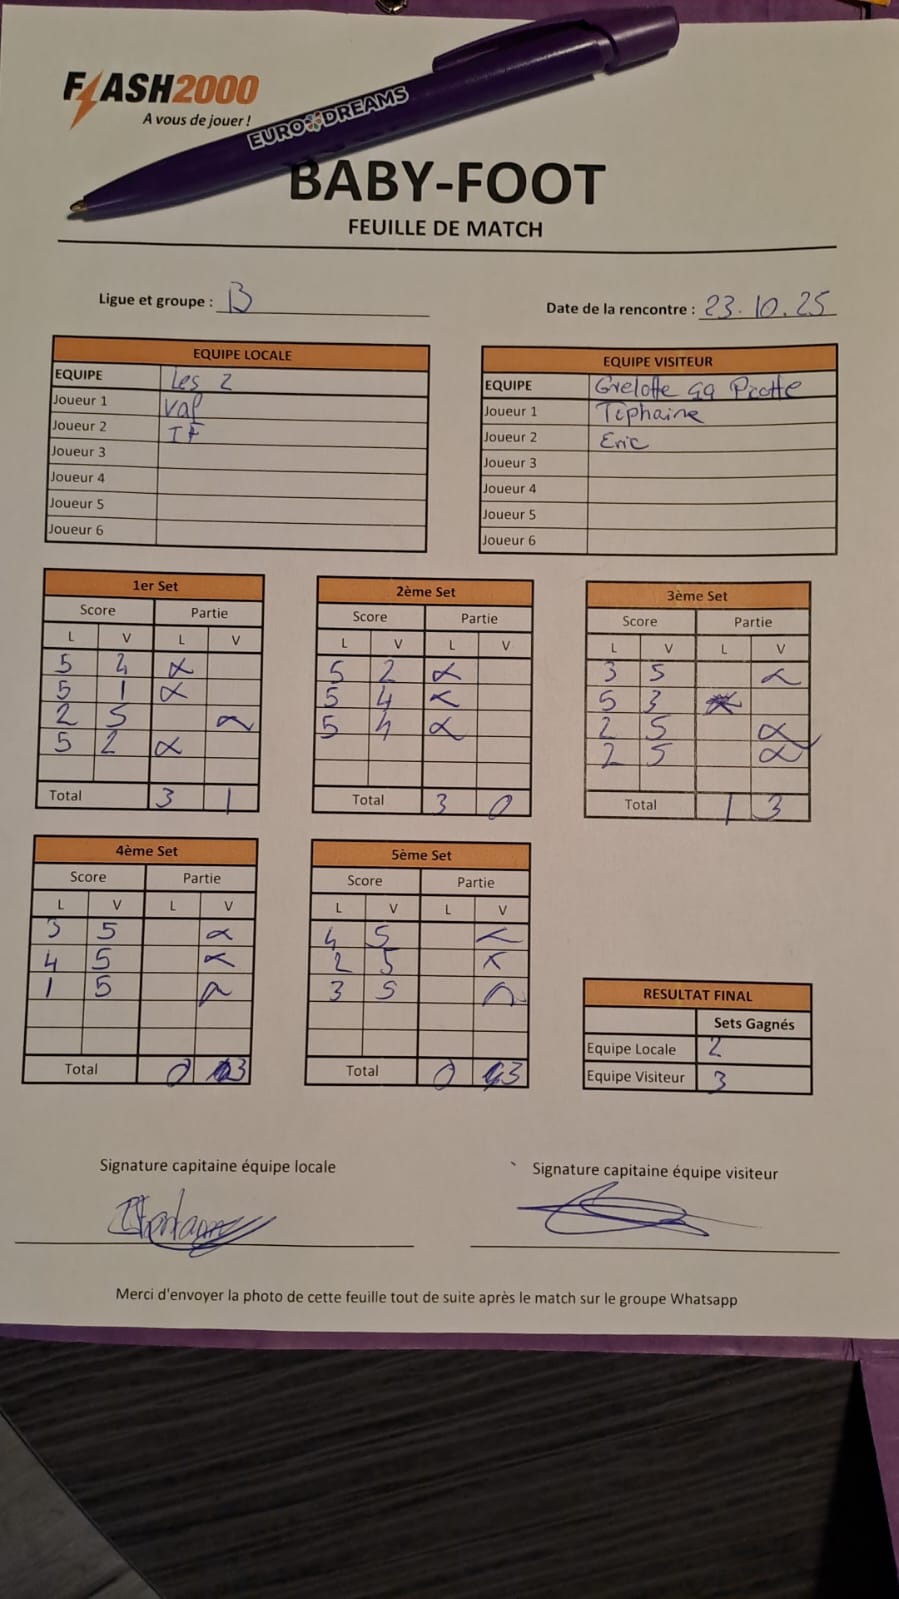 FLASH2000
A vous de jouer !
EURODREAMS
BABY-FOOT
FEUILLE DE MATCH
Ligue et groupe : B
Date de la rencontre : 23.10.25
EQUIPE LOCALE
EQUIPE Les 2
Joueur 1 Val
Joueur 2
Joueur 3
Joueur 4
Joueur 5
Joueur 6
EQUIPE VISITEUR
EQUIPE Grelotte ça Picotte
Joueur 1 Tiphaine
Joueur 2 Eric
Joueur 3
Joueur 4
Joueur 5
Joueur 6
1er Set
Score Partie
L V L V
5 4 x
5 1 x
2 5 x
5 2 x
Total 3 1
2ème Set
Score Partie
L V L V
5 2 x
5 4 x
5 4 x
Total 3 0
3ème Set
Score Partie
L V L V
3 5 x
5 3 x
2 5 x
2 5 x
Total 1 3
4ème Set
Score Partie
L V L V
3 5 x
4 5 x
1 5 x
Total 0 3
5ème Set
Score Partie
L V L V
4 5 x
2 5 x
3 5 x
Total 0 3
RESULTAT FINAL
Sets Gagnés
Equipe Locale 2
Equipe Visiteur 3
Signature capitaine équipe locale
Signature capitaine équipe visiteur
Merci d'envoyer la photo de cette feuille tout de suite après le match sur le groupe Whatsapp